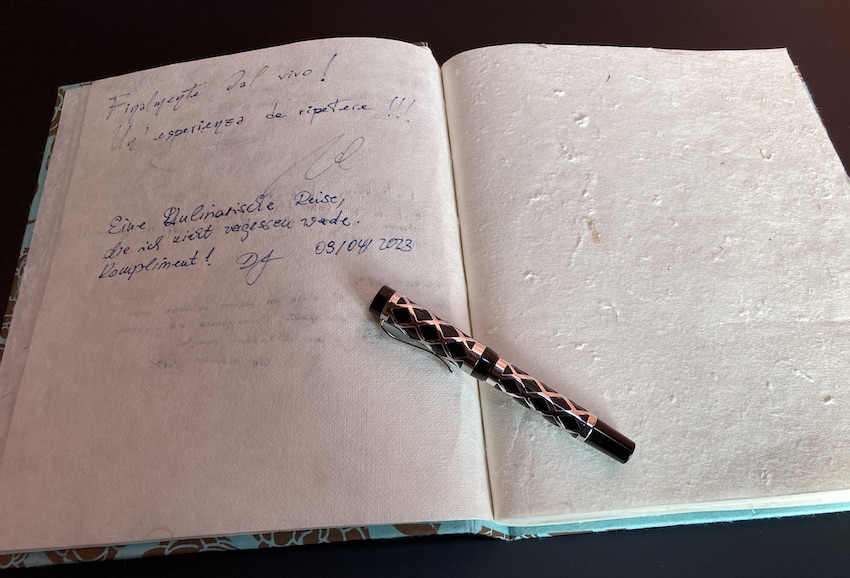 Finalmente dal vivo!
Un'esperienza da ripetere !!!
Eine Kulinarische Reise,
die ich nicht vegessen werde.
Kompliment! DJ 09/04/2023